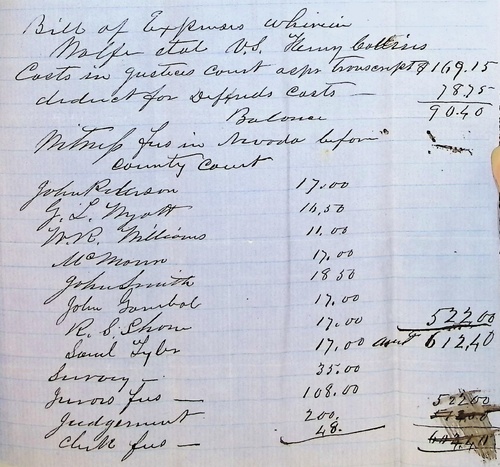 Bill of Expenses wherein
Wolfe etal V.S. Henry Collins
Costs in justices court as pr transcript $169.15
deduct for Deffnds costs — 78.75
Balance 90.40
Witness fees in Nevada before
County Court
John Peterson 17.00
G. L. Wyatt 16.50
W. R. Williams 11.00
McMann 17.00
John Smith 18.50
John Gambol 17.00
R. S. Show 17.00 522.00
Saml Tyler 17.00 amt 612.40
Survey — 35.00
Jurors fees — 108.00 522.00
Judgement 200.
Clerk fees — 48.